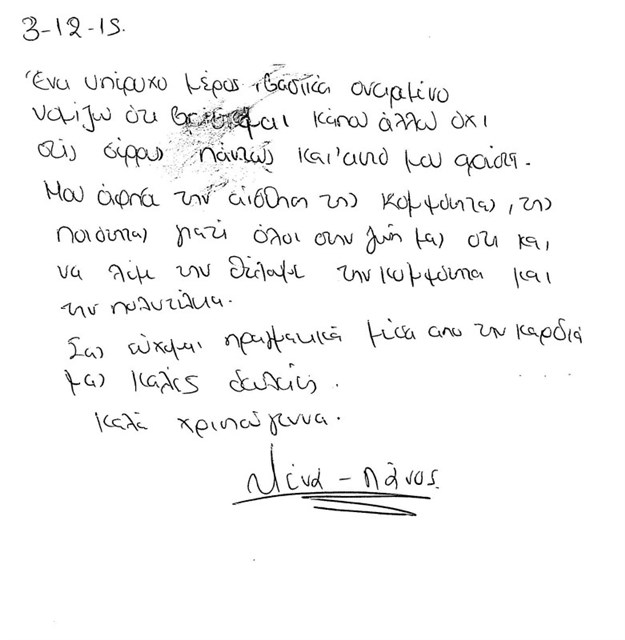 3-12-15.
Ένα υπέροχο μέρος, βασικά ονειρεμένο
νομίζω ότι βρίσκομαι κάπου άλλου όχι
στις σέρρας πάντως και αυτό μου αρέσει.
Μου άφησε την αίσθηση της κομψότητας, της
ποιότητας γιατί όλοι στην ζωή μας ότι και
να λέμε την θέλουμε την κομψότητα και
την πολυτέλεια.
Σας εύχομαι πραγματικά μέσα απο την καρδιά
μας καλές δουλειές.
Καλά χριστούγεννα.
Νένα - Πάνος.